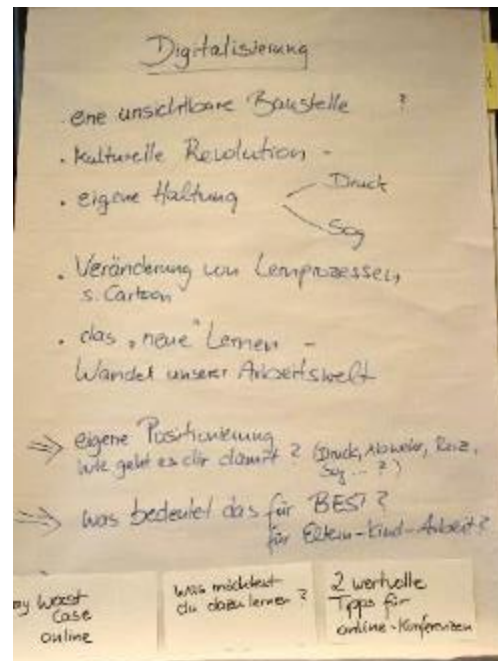 Digitalisierung
· eine unsichtbare Baustelle ?
· kulturelle Revolution -
· eigene Haltung
Druck
Sog
· Veränderung von Lernprozessen,
s. Cartoon
· das "neue" Lernen -
Wandel unserer Arbeitswelt
⇒ eigene Positionierung
Wie geht es dir damit? (Druck, Abwehr, Reiz,
Sog ... ?)
⇒ was bedeutet das für BEST?
für Eltern-Kind-Arbeit?
my worst
case
online
was möchtest
du dazu lernen?
2 wertvolle
Tipps für
online-Konferenzen